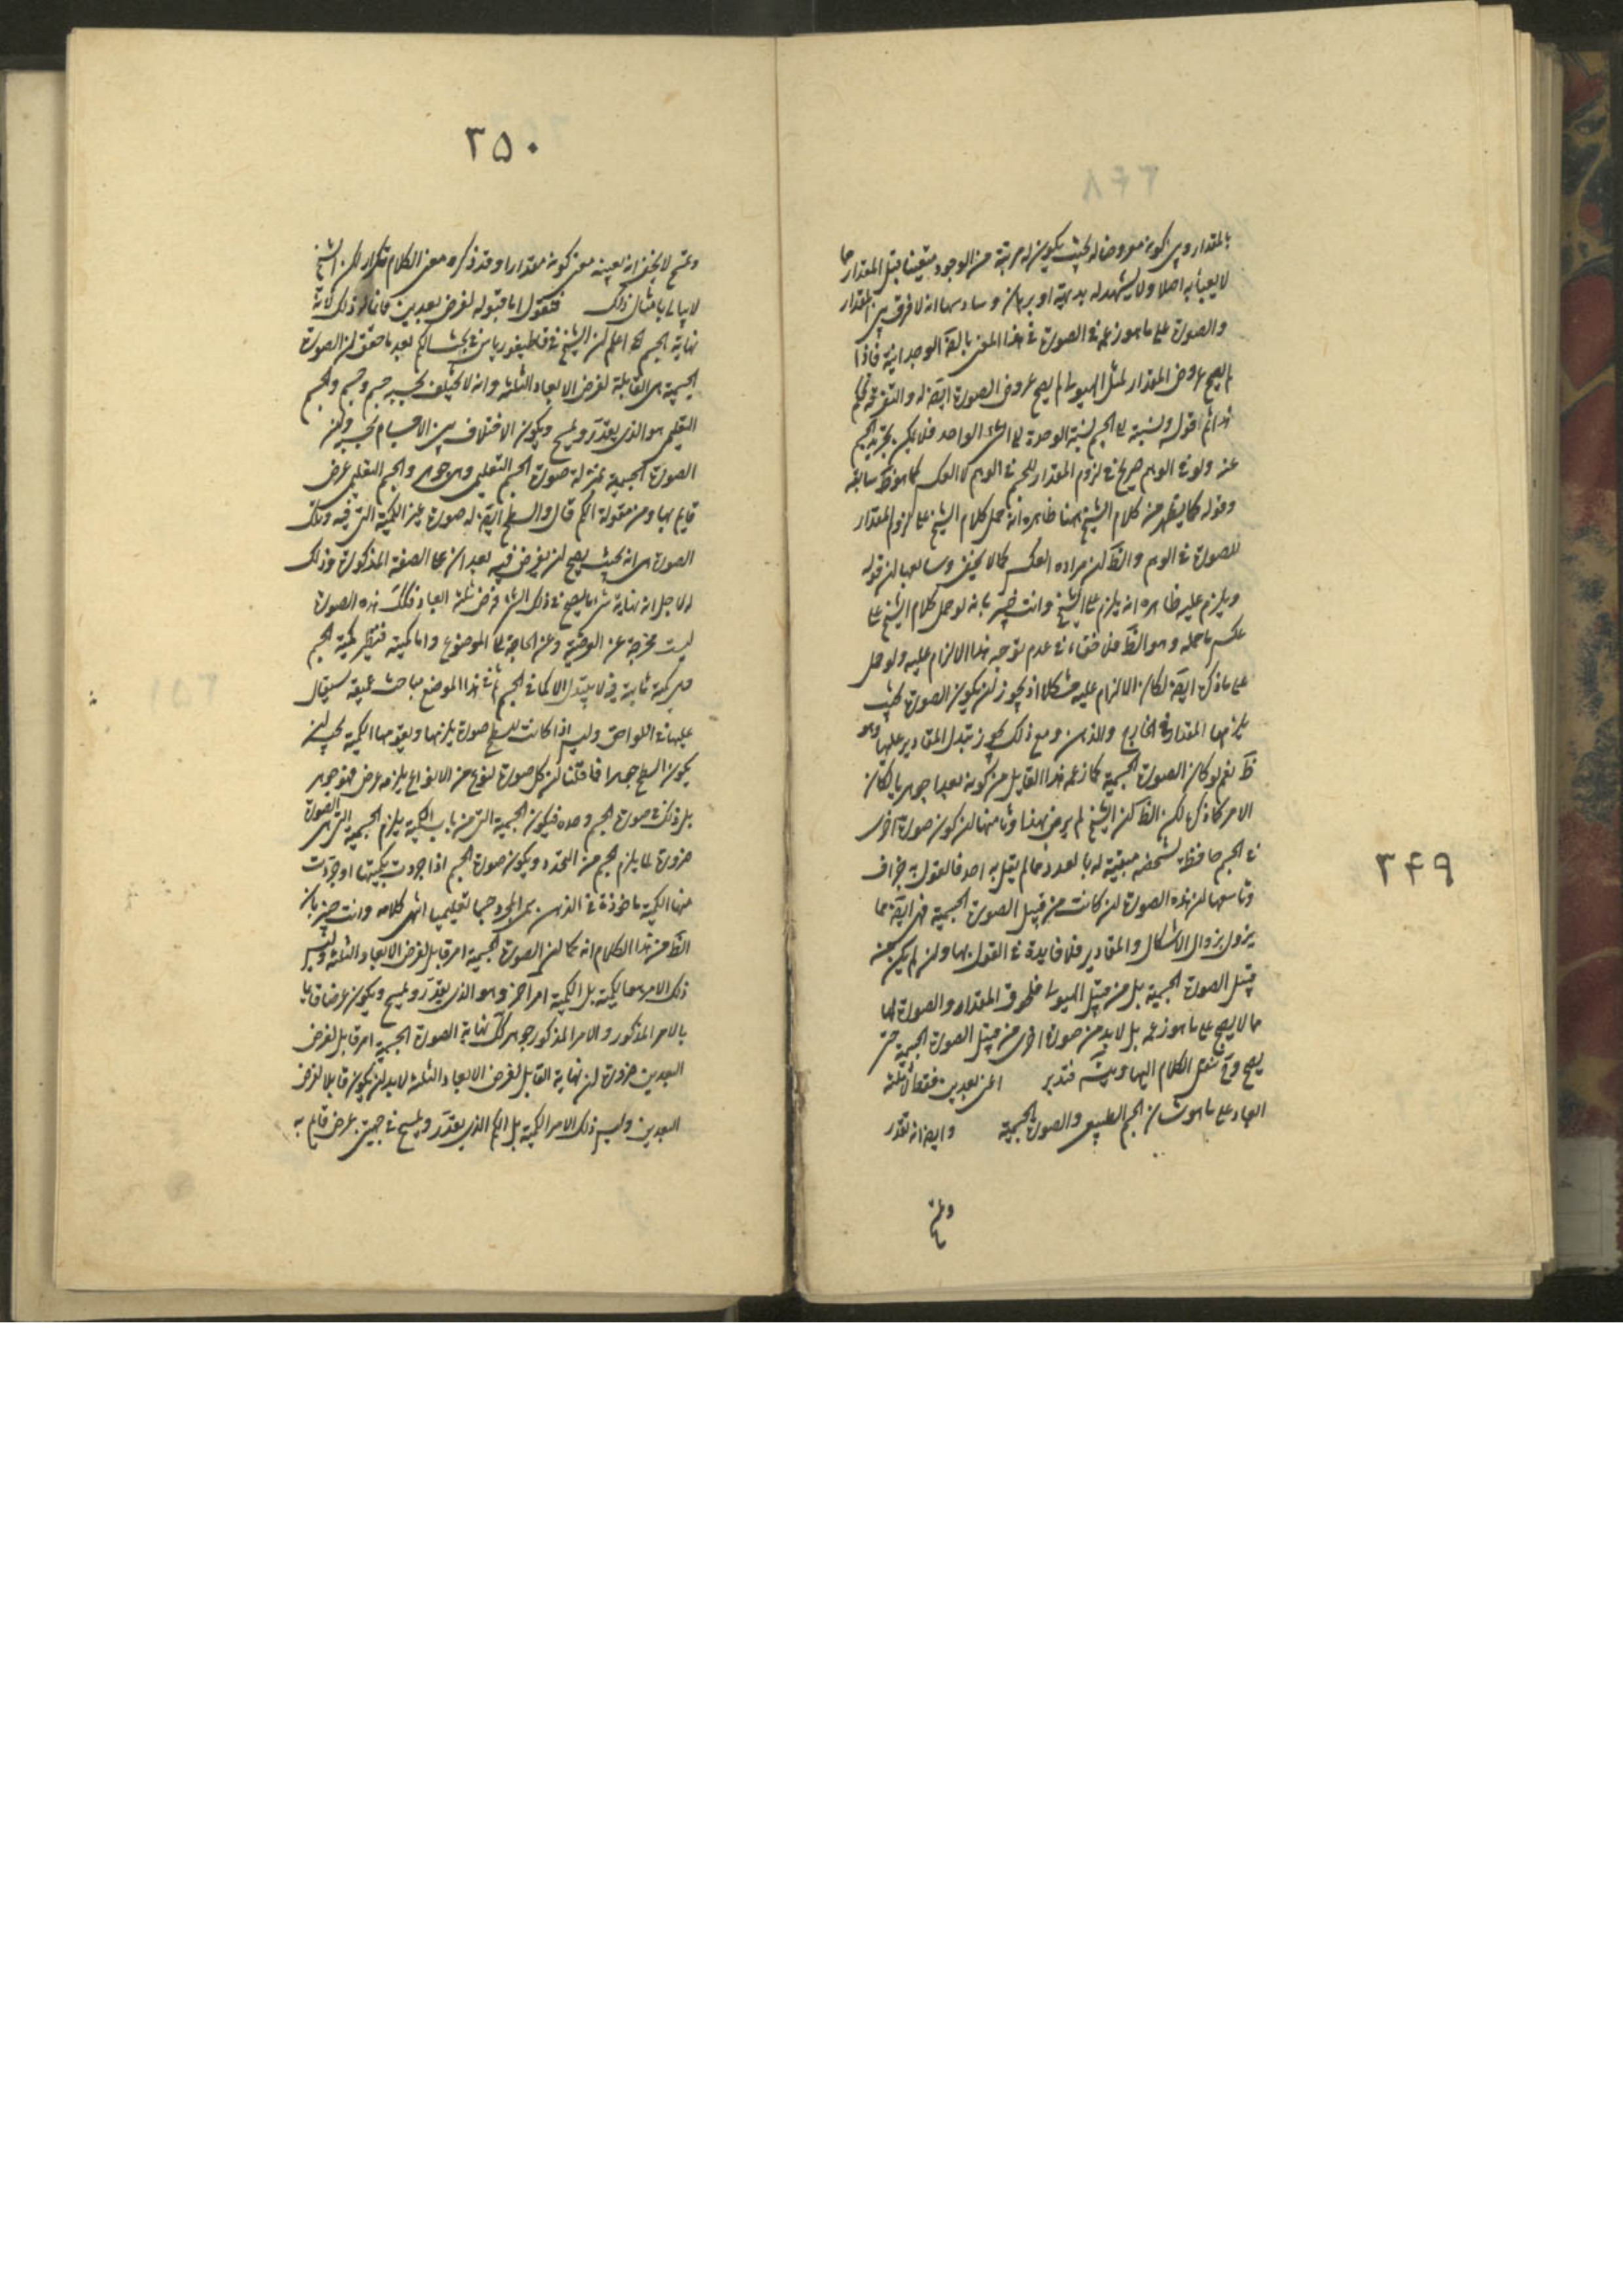 ٣٤٩
بالمقدار وبين كونه معروضا له بحيث يكون له مرتبة من الوجود متعينا قبل المقدار مما
لا يعبأ به اصلا ولا يشهد له بديهة او برهان وسادسها انه لا فرق بين المقدار
والصورة على ما هو زعمه في الصورة في هذا المعنى بالعة الوجدانية فاذا
لم يصح عروض المقدار لمثل الهيولى لم يصح عروض الصورة ايضا له والتفرقة تحكم
ثم اقول ونسبته الى الجسم نسبة الوحدة الى الشيء الواحد فلا يمكن تجريد الجسم
عنه ولو في الوهم صريح في لزوم المقدار للجسم في الوهم لا العكس كما هو ظ سابقه
وقوله كما يظهر من كلام الشيخ ههنا ظاهره انه حمل كلام الشيخ على لزوم المقدار
للصورة في الوهم والظ ان مراده العكس كما لا يخفى وسابعها ان قوله
ويلزم عليه ظاهره انه يلزم على الشيخ وانت خبير بانه لو حمل كلام الشيخ على
عكس ما حمله وهو الظ فلا خفاء في عدم توجه هذا الالزام عليه ولو حمل
على ما ذكره ايضا لكان الالزام عليه مشكلا اذ يجوز ان يكون الصورة بحيث
يلزمها المقدار في الخارج والذهن ومع ذلك يجوز تبدل المقادير عليها وهو
ظ نعم لو كان الصورة الجسمية كما زعمه هذا القايل من كونه بعدا جوهريا لكان
الامر كما ذكره لكن الظ ان الشيخ لم يرض بهذا وثامنها ان كون صورة اخرى
في الجسم حافظة لشخصه مبقية له بالعدد مما لم يقل به احد فالقول به جزاف
وتاسعها ان هذه الصورة ان كانت من قبيل الصورة الجسمية فهي ايضا مما
يزول بزوال الاشكال والمقادير فلا فايدة في القول بها وان لم يكن من
قبيل الصورة الجسمية بل من قبيل الهيولى فلحوق المقدار والصورة لها
مما لا يصح على ما هو زعمه بل لا بد من صورة اخرى من قبيل الصورة الجسمية حتى
يصح وح ننقل الكلام اليها ويتسلسل فتدبر اعنى بعدين فقط لا ثلثة
ابعاد على ما هو شان الجسم الطبيعي والصورة الجسمية وايضا انه تقدر
وتمسح
٣٥٠
وتمسح لا يخفى انه بعينه معنى كونه مقدارا وقد ذكره معنى الكلام تكرار لكن الشيخ
لا يبالى بامثال ذلك فنقول اما قبوله لفرض بعدين فانما له ذلك لانه
نهاية الجسم الخ اعلم ان الشيخ في قاطيغورياس في بحث الكم بعد ما حقق ان الصورة
الجسمية هي القابلة لفرض الابعاد الثلثة وانه لا يختلف بحسبه جسم وجسم والجسم
التعليمي هو الذي يقدر ويمسح ويكون الاختلاف بين الاجسام بحسبه وان
الصورة الجسمية بمنزلة صورة الجسم التعليمي وهي جوهر والجسم التعليمي عرض
قايم بها ومن مقولة الكم قال والسطح ايضا له صورة يلزم الكمية التي فيه وتلك
الصورة هي انه بحيث يصح ان يفرض فيه بعدان على الصفة المذكورة وذلك
له لاجل انه نهاية شيء ما يصح في ذلك الشيء فرض ثلثة ابعاد فكك هذه الصورة
ليست مخرجة عن العرضية وعن الحاجة الى الموضوع واما كميته فنظير كمية الجسم
وهي كمية ثابتة فيه لا يتبدل الا كما في الجسم ثم في هذا الموضع مباحث عميقة سيقال
عليها في اللواحق وليس اذا كانت للسطح صورة يلزمها ويقومها الكمية يجب ان
يكون السطح جوهرا فما قلنا ان كل صورة لنوع من الانواع يلزمه عرض فهو جوهر
بل ذلك في صورة الجسم وحده فيكون الجسمية التي من باب الكمية يلزم الجسمية التي هي الصورة
ضرورة لما يلزم الجسم من التحدد ويكون صورة الجسم اذا جردت بكميتها او جردت
منها الكمية ماخوذة في الذهن سمى المجرد جسما تعليميا انتهى كلامه وانت خبير بان
الظ من هذا الكلام انه كما ان الصورة الجسمية امر قابل لفرض الابعاد الثلثة وليس
ذلك الامر هو الكمية بل الكمية امر اخر وهو الذي يقدر ويمسح ويكون عرضا قايما
بالامر المذكور والامر المذكور جوهر كك نهاية الصورة الجسمية امر قابل لفرض
البعدين ضرورة ان نهاية القابل لفرض الابعاد الثلثة لا بد ان يكون قابلا لفرض
البعدين وليس ذلك الامر الكمية بل الكم الذي يقدر ويمسح في جهتين عرض قايم به